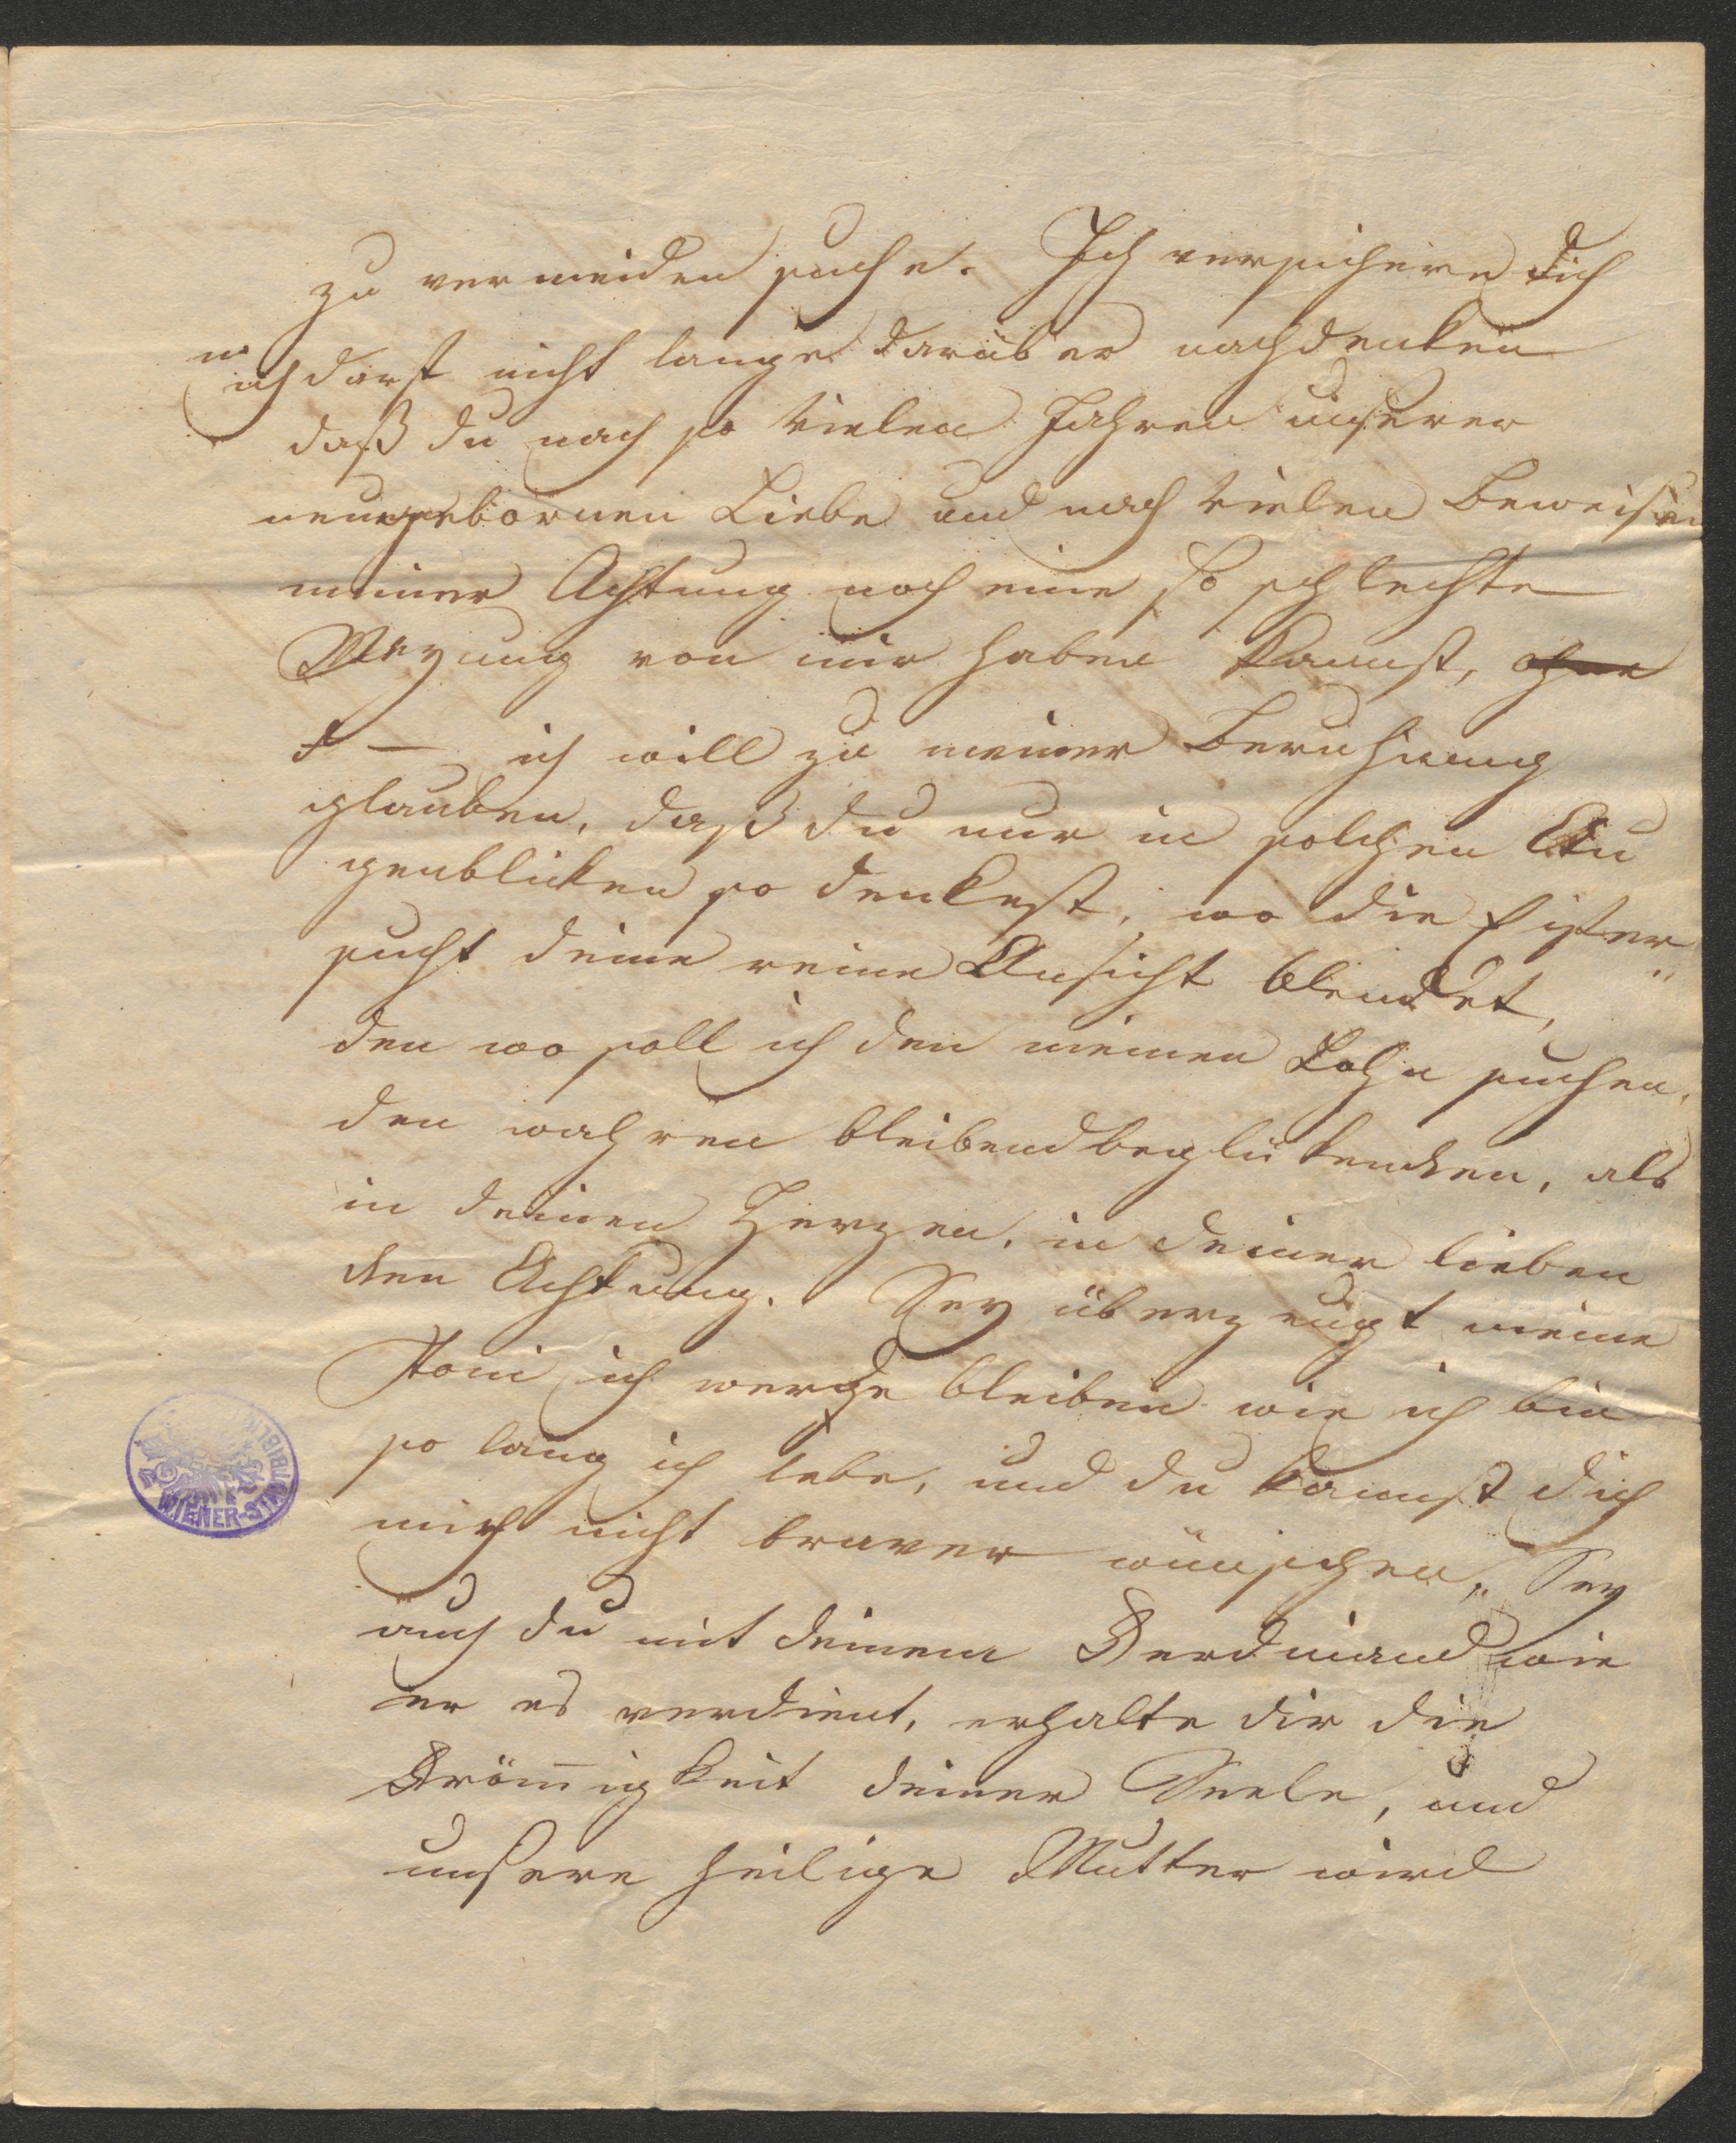 zu vermeiden suche. Ich versichere dich
ich darf nicht lange darüber nachdenken
daß du nach so vielen Jahren unserer
neugebornen Liebe und nach vielen Beweisen
meiner Achtung noch eine so schlechte
Meynung von mir haben kannst, ohne
– ich will zu meiner Beruhigung
glauben, daß du nur in solchen Au
genblicken so denkest, wo die Eifer
sucht deine reine Ansicht blendet,
den wo soll ich den meinen Lohn suchen,
den wahren bleibend beglükenden, als
in deinen Herzen, in deiner lieben
den Achtung. Sey überzeugt meine
Toni ich werde bleiben wie ich bin
so lang ich lebe, und du kannst dich
mich nicht braver wünschen, Sey
auch du mit deinem Ferdinand wie
er es verdient, erhalte dir die
Frömigkeit deiner Seele, und
unsere heilige Mutter wird
WIENER-STADTBIBL